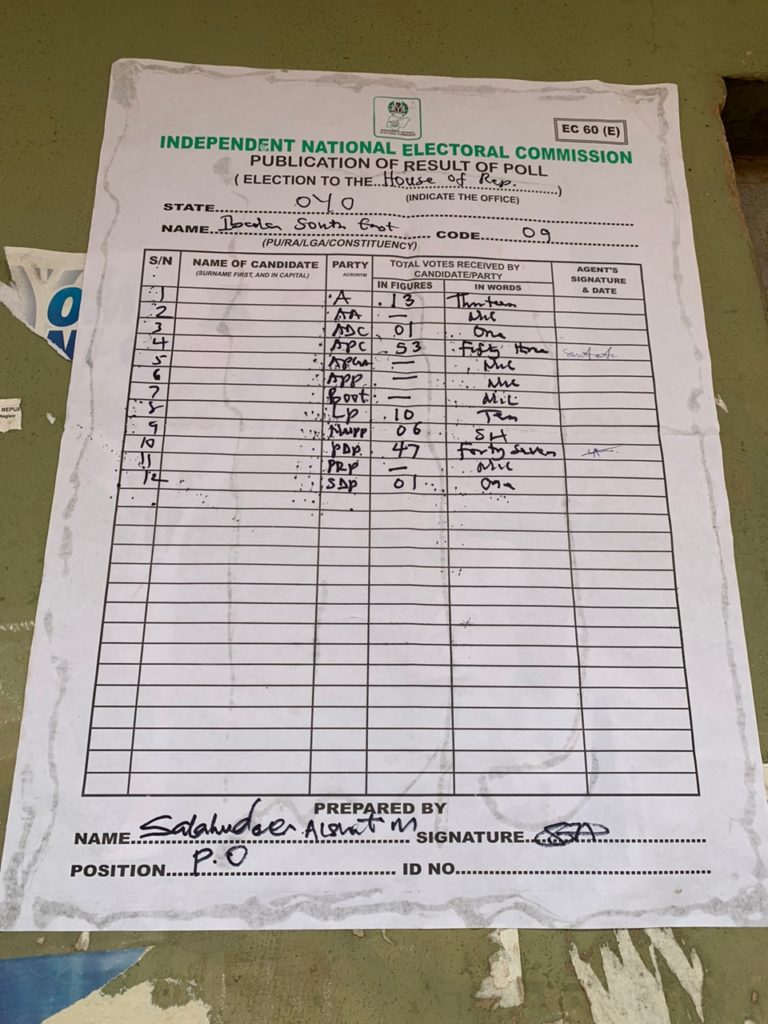 EC 60 (E)
INDEPENDENT NATIONAL ELECTORAL COMMISSION
PUBLICATION OF RESULT OF POLL
( ELECTION TO THE...House of Rep.............)
(INDICATE THE OFFICE)
STATE.......OYO
NAME...Ibadan South East CODE........09
(PU/RA/LGA/CONSTITUENCY)
S/N NAME OF CANDIDATE PARTY TOTAL VOTES RECEIVED BY AGENT'S
(SURNAME FIRST, AND IN CAPITAL) ACRONYM CANDIDATE/PARTY SIGNATURE
IN FIGURES IN WORDS & DATE
1 A 13 Thirteen
2 AA — Nil
3 ADC 01 One
4 APC 53 Fifty three
5 APGA — Nil
6 APP — Nil
7 Boot — Nil
8 LP 10 Ten
9 NNPP 06 SIX
10 PDP 47 Forty Seven
11 PRP — Nil
12 SDP 01 One
PREPARED BY
NAME...Salahudeen M SIGNATURE
POSITION....P.O ID NO.